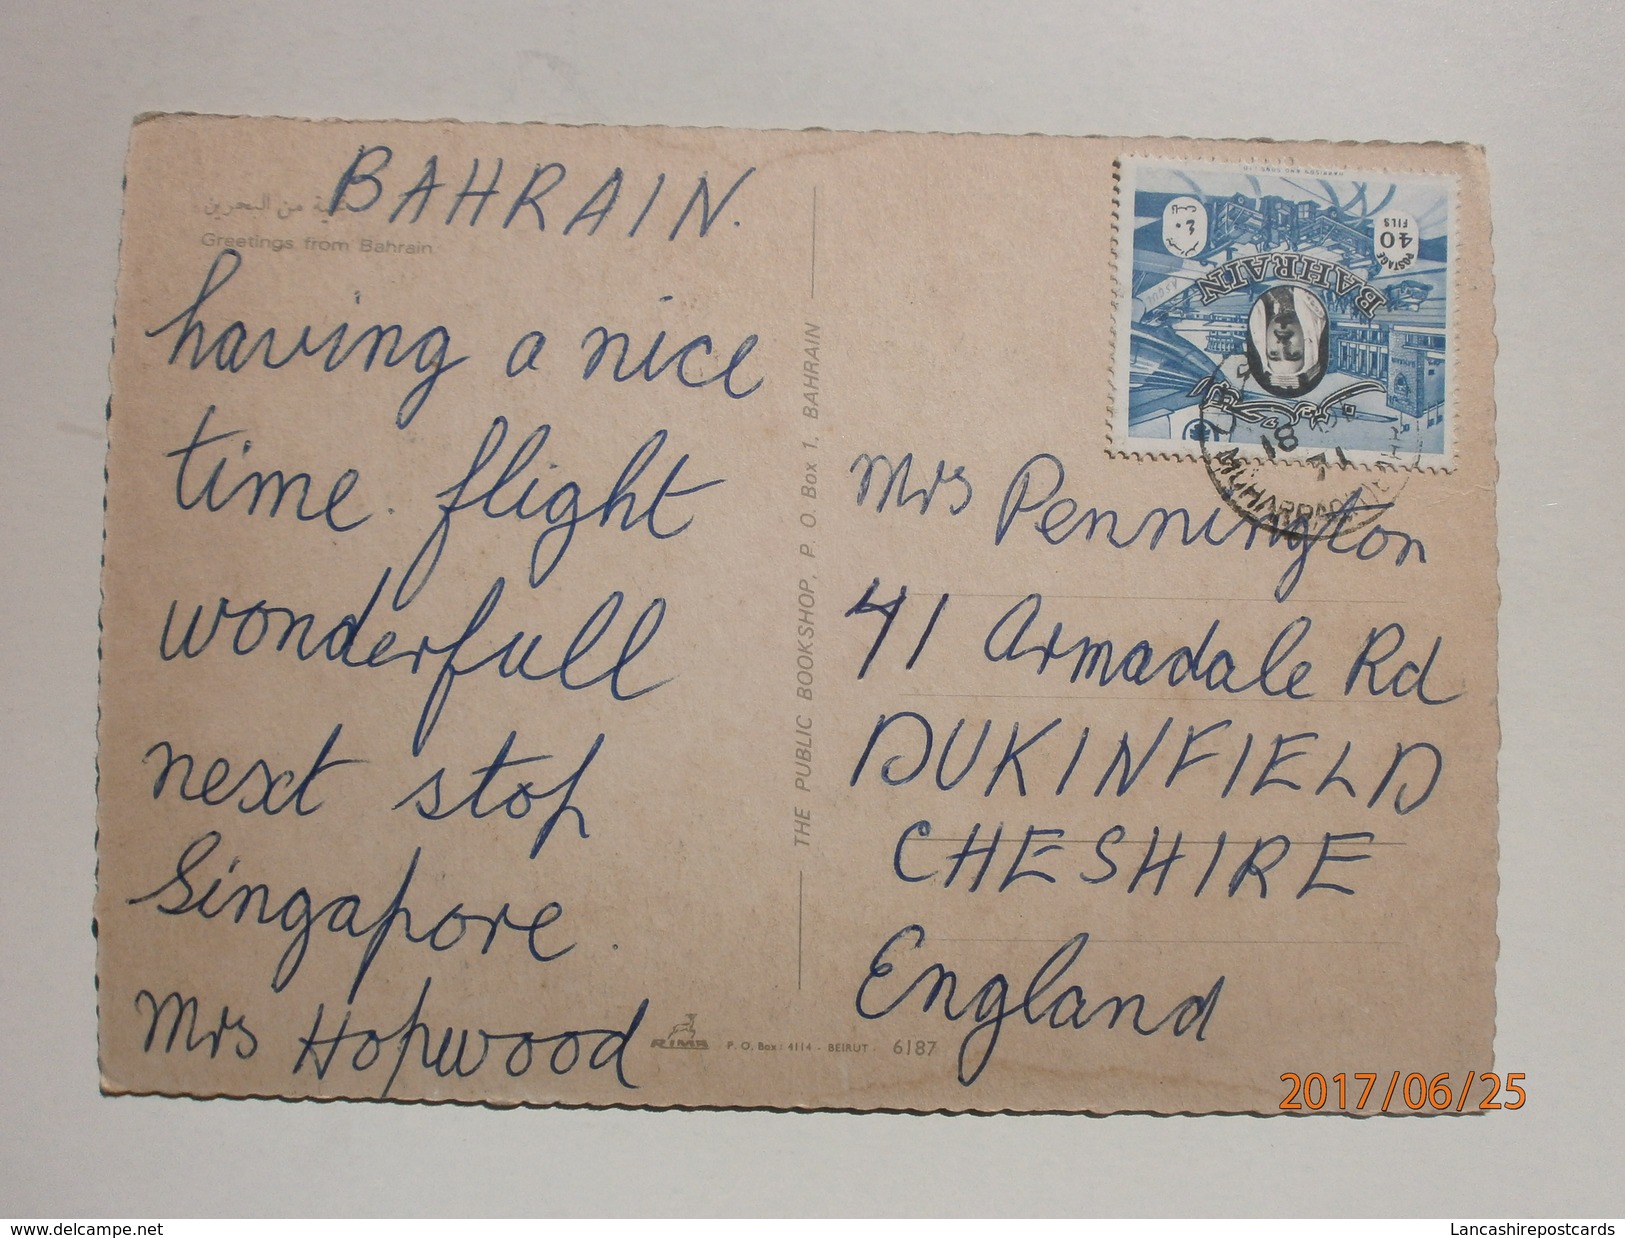 BAHRAIN.
تحية من البحرين
Greetings from Bahrain
having a nice
time. flight
wonderfull
next stop
Singapore.
Mrs Hopwood
THE PUBLIC BOOKSHOP, P. O. Box 1, BAHRAIN
RIMA P.O. Box: 4114 - BEIRUT. 6187
HARRISON AND SONS LTD
POSTAGE
40
FILS
٤٠
BAHRAIN
18
71
MUHARRAQ
Mrs Pennington
41 Armadale Rd
DUKINFIELD
CHESHIRE
England
2017/06/25
www.delcampe.net
Lancashirepostcards